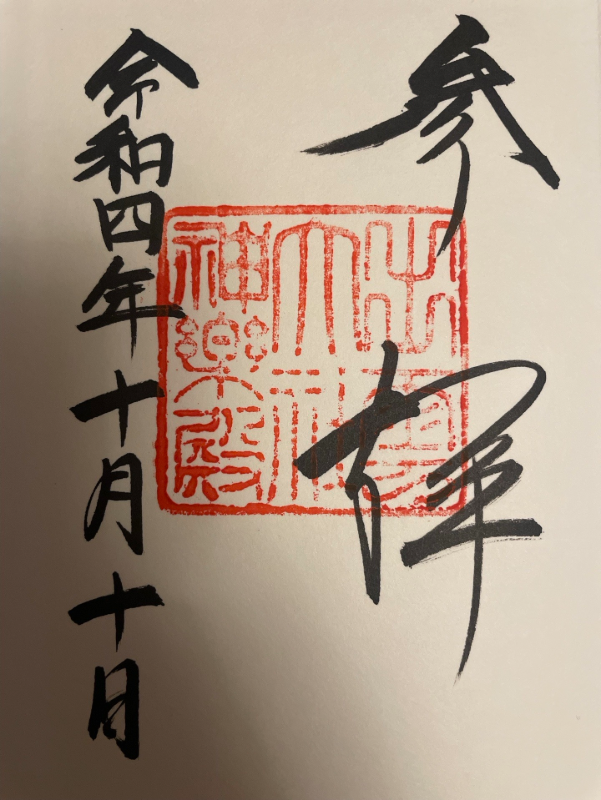 参拝
出雲
大社
神楽殿
令和四年十月十日